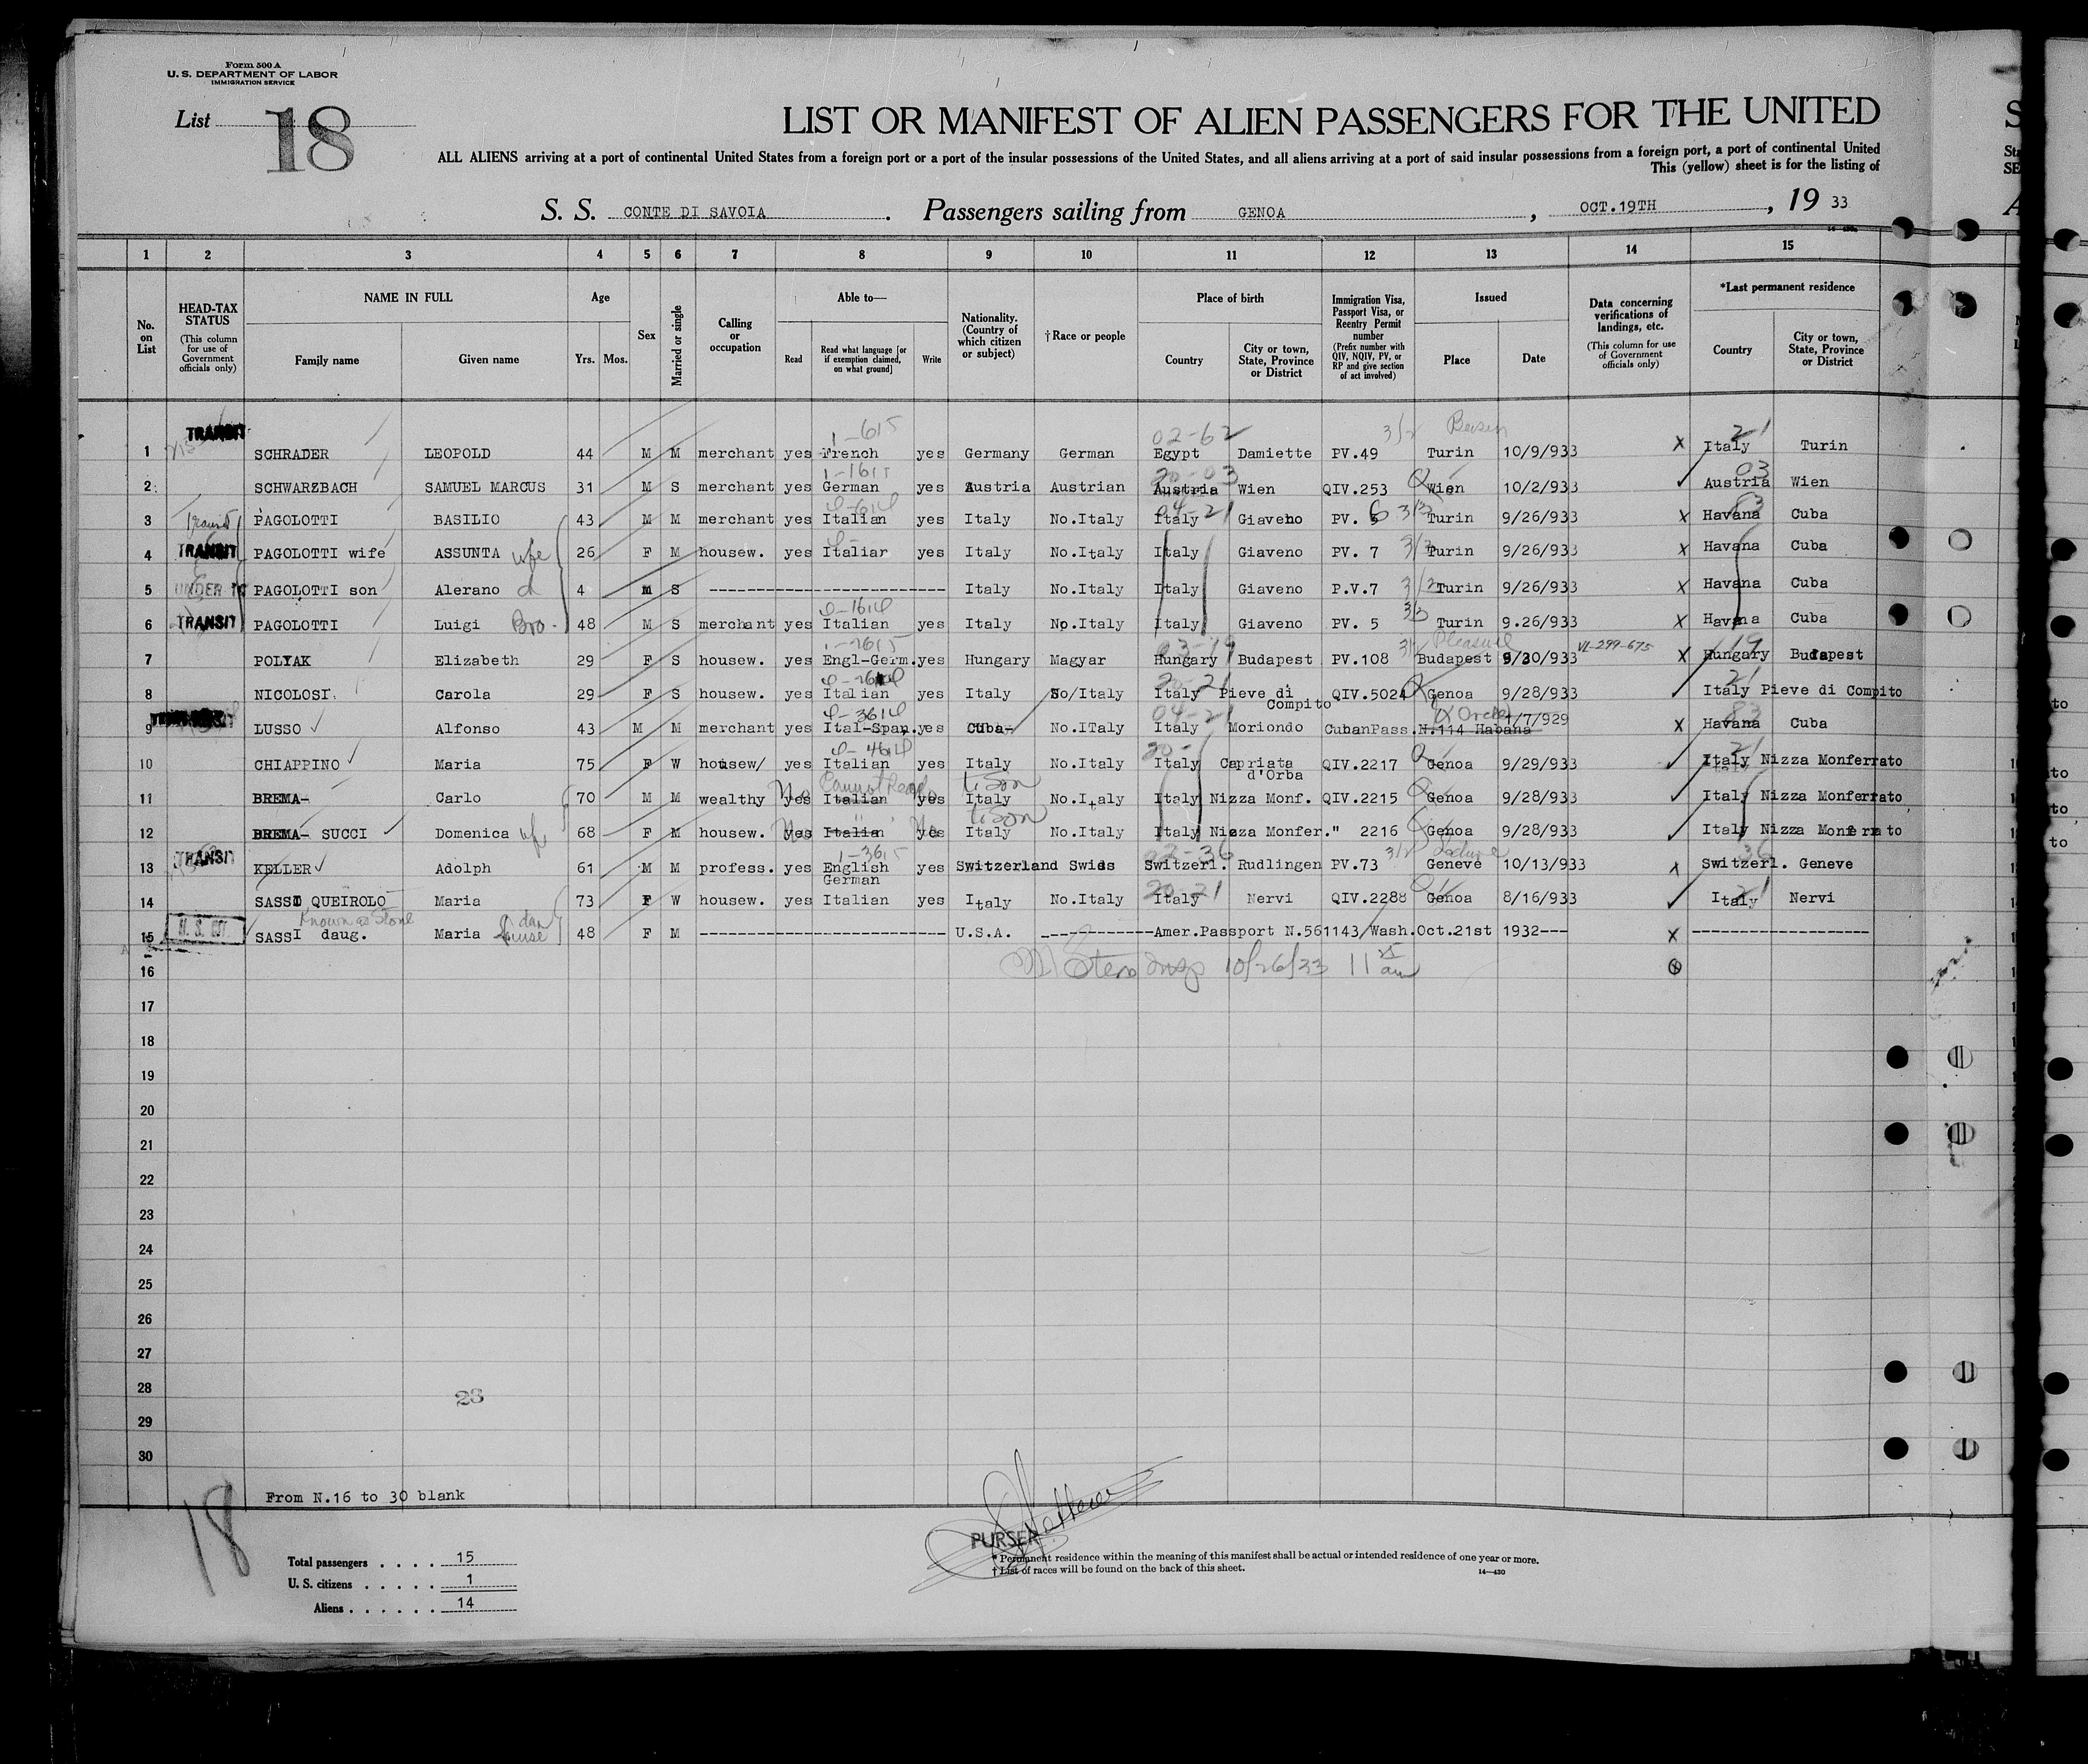 Form 500 A
U. S. DEPARTMENT OF LABOR
IMMIGRATION SERVICE
List 18
LIST OR MANIFEST OF ALIEN PASSENGERS FOR THE UNITED
ALL ALIENS arriving at a port of continental United States from a foreign port or a port of the insular possessions of the United States, and all aliens arriving at a port of said insular possessions from a foreign port, a port of continental United
This (yellow) sheet is for the listing of
S. S. CONTE DI SAVOIA. Passengers sailing from GENOA, OCT.19TH, 19 33
1 2 3 4 5 6 7 8 9 10 11 12 13 14 15
No. on List
HEAD-TAX STATUS
(This column for use of Government officials only)
NAME IN FULL
Family name Given name
Age
Yrs. Mos.
Sex
Married or single
Calling or occupation
Able to—
Read
Read what language [or if exemption claimed, on what ground]
Write
Nationality. (Country of which citizen or subject)
†Race or people
Place of birth
Country
City or town, State, Province or District
Immigration Visa, Passport Visa, or Reentry Permit number
(Prefix number with QIV, NQIV, PV, or RP and give section of act involved)
Issued
Place Date
Data concerning verifications of landings, etc.
(This column for use of Government officials only)
*Last permanent residence
Country
City or town, State, Province or District
TRANSIT 1-615 02-62 3/2 21
1 SCHRADER LEOPOLD 44 M M merchant yes French yes Germany German Egypt Damiette PV.49 Turin 10/9/933 x Italy Turin
1-1615 20-03 03
2 SCHWARZBACH SAMUEL MARCUS 31 M S merchant yes German yes Austria Austrian Austria Wien QIV.253 Wien 10/2/933 Austria Wien
04-21 83
3 Transit PAGOLOTTI BASILIO 43 M M merchant yes Italian yes Italy No.Italy Italy Giaveno PV. 6 Turin 9/26/933 x Havana Cuba
4 TRANSIT PAGOLOTTI wife ASSUNTA wife 26 F M housew. yes Italian yes Italy No.Italy Italy Giaveno PV. 7 Turin 9/26/933 x Havana Cuba
5 UNDER 16 PAGOLOTTI son Alerano 4 M S Italy No.Italy Italy Giaveno P.V.7 3/2 Turin 9/26/933 x Havana Cuba
6 TRANSIT PAGOLOTTI Luigi Bro. 48 M S merchant yes Italian yes Italy No.Italy Italy Giaveno PV. 5 Turin 9.26/933 x Havana Cuba
1-2615 03-19 Pleasure VL-299-675 19
7 POLYAK Elizabeth 29 F S housew. yes Engl-Germ. yes Hungary Magyar Hungary Budapest PV.108 Budapest 9/30/933 x Hungary Budapest
20-21 21
8 NICOLOSI Carola 29 F S housew. yes Italian yes Italy So/Italy Italy Pieve di Compito QIV.5024 Genoa 9/28/933 Italy Pieve di Compito
04-21 83
9 LUSSO Alfonso 43 M M merchant yes Ital-Span. yes Cuba No.ITaly Italy Moriondo CubanPass.N.114 Habana 1/7/929 x Havana Cuba
20- 21
10 CHIAPPINO Maria 75 F W housew/ yes Italian yes Italy No.Italy Italy Capriata d'Orba QIV.2217 Genoa 9/29/933 Italy Nizza Monferrato
No Cannot Read No
11 BREMA- Carlo 70 M M wealthy yes Italian yes Italy No.Italy Italy Nizza Monf. QIV.2215 Genoa 9/28/933 Italy Nizza Monferrato
12 BREMA- SUCCI Domenica wife 68 F M housew. yes No Italia No yes Italy No.Italy Italy Nizza Monfer. " 2216 Genoa 9/28/933 Italy Nizza Monferrato
TRANSIT 1-3615 22-36 3/2 36
13 KELLER Adolph 61 M M profess. yes English German yes Switzerland Swiss Switzerl. Rudlingen PV.73 Geneve 10/13/933 x Switzerl. Geneve
20-21 21
14 SASSI QUEIROLO Maria 73 F W housew. yes Italian yes Italy No.Italy Italy Nervi QIV.2288 Genoa 8/16/933 Italy Nervi
Known as Stone
15 U. S. CIT. SASSI daug. Maria dau 48 F M U.S.A. Amer.Passport N.561143/Wash.Oct.21st 1932--- x
16 Insp 10/26/33 11 15 am
17
18
19
20
21
22
23
24
25
26
27
28
23
29
30
From N.16 to 30 blank
18
Total passengers . . . . 15
U. S. citizens . . . . . 1
Aliens . . . . . . 14
PURSER
* Permanent residence within the meaning of this manifest shall be actual or intended residence of one year or more.
† List of races will be found on the back of this sheet.
14—430